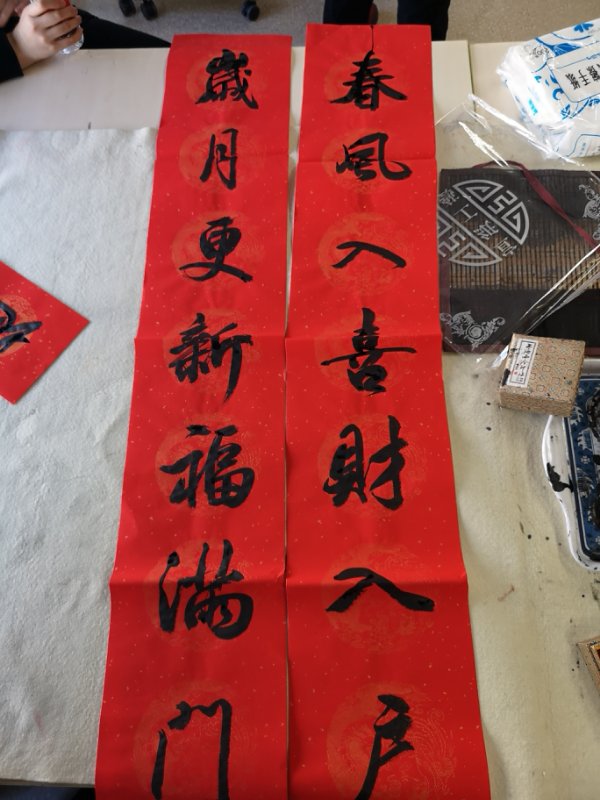 春風入喜財入户
歲月更新福滿门